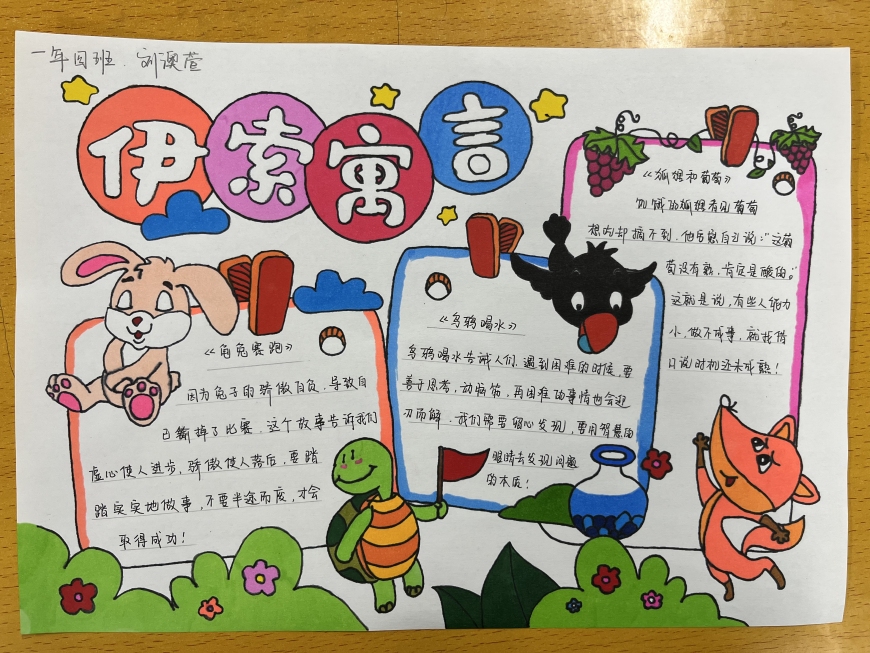 一年四班 刘澳萱
伊索寓言
《龟兔赛跑》
因为兔子的骄傲自负，导致自
己输掉了比赛。这个故事告诉我们
虚心使人进步，骄傲使人落后，要踏
踏实实地做事，不要半途而废，才会
取得成功！
《乌鸦喝水》
乌鸦喝水告诫人们，遇到困难的时候，要
善于思考，动脑筋，再困难的事情也会迎
刃而解。我们需要留心发现，要用智慧的
眼睛去发现问题
的本质！
《狐狸和葡萄》
饥饿的狐狸看见葡萄
想吃却摘不到，他安慰自己说："这葡
萄没有熟，肯定是酸的。"
这就是说，有些人能力
小，做不成事，就找借
口说时机还未成熟！